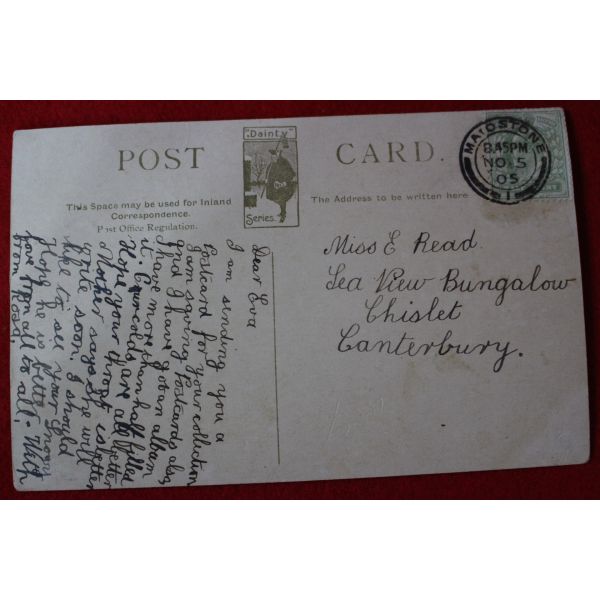 POST CARD.
"Dainty"
Series.
This Space may be used for Inland
Correspondence.
Post Office Regulation.
The Address to be written here
MAIDSTONE
8.45PM
NO 5
05
1
Miss E Read.
Sea View Bungalow
Chislet
Canterbury.
Dear Eva
I am sending you a
Postcard for your collection
I am saving Postcards also
and I have got an album
I have more than half filled
it. Our colds are all better
Hope your throat is better
Mother says she will
write soon. I should
like to see your
Hope he is better. With
love from all to all.
from